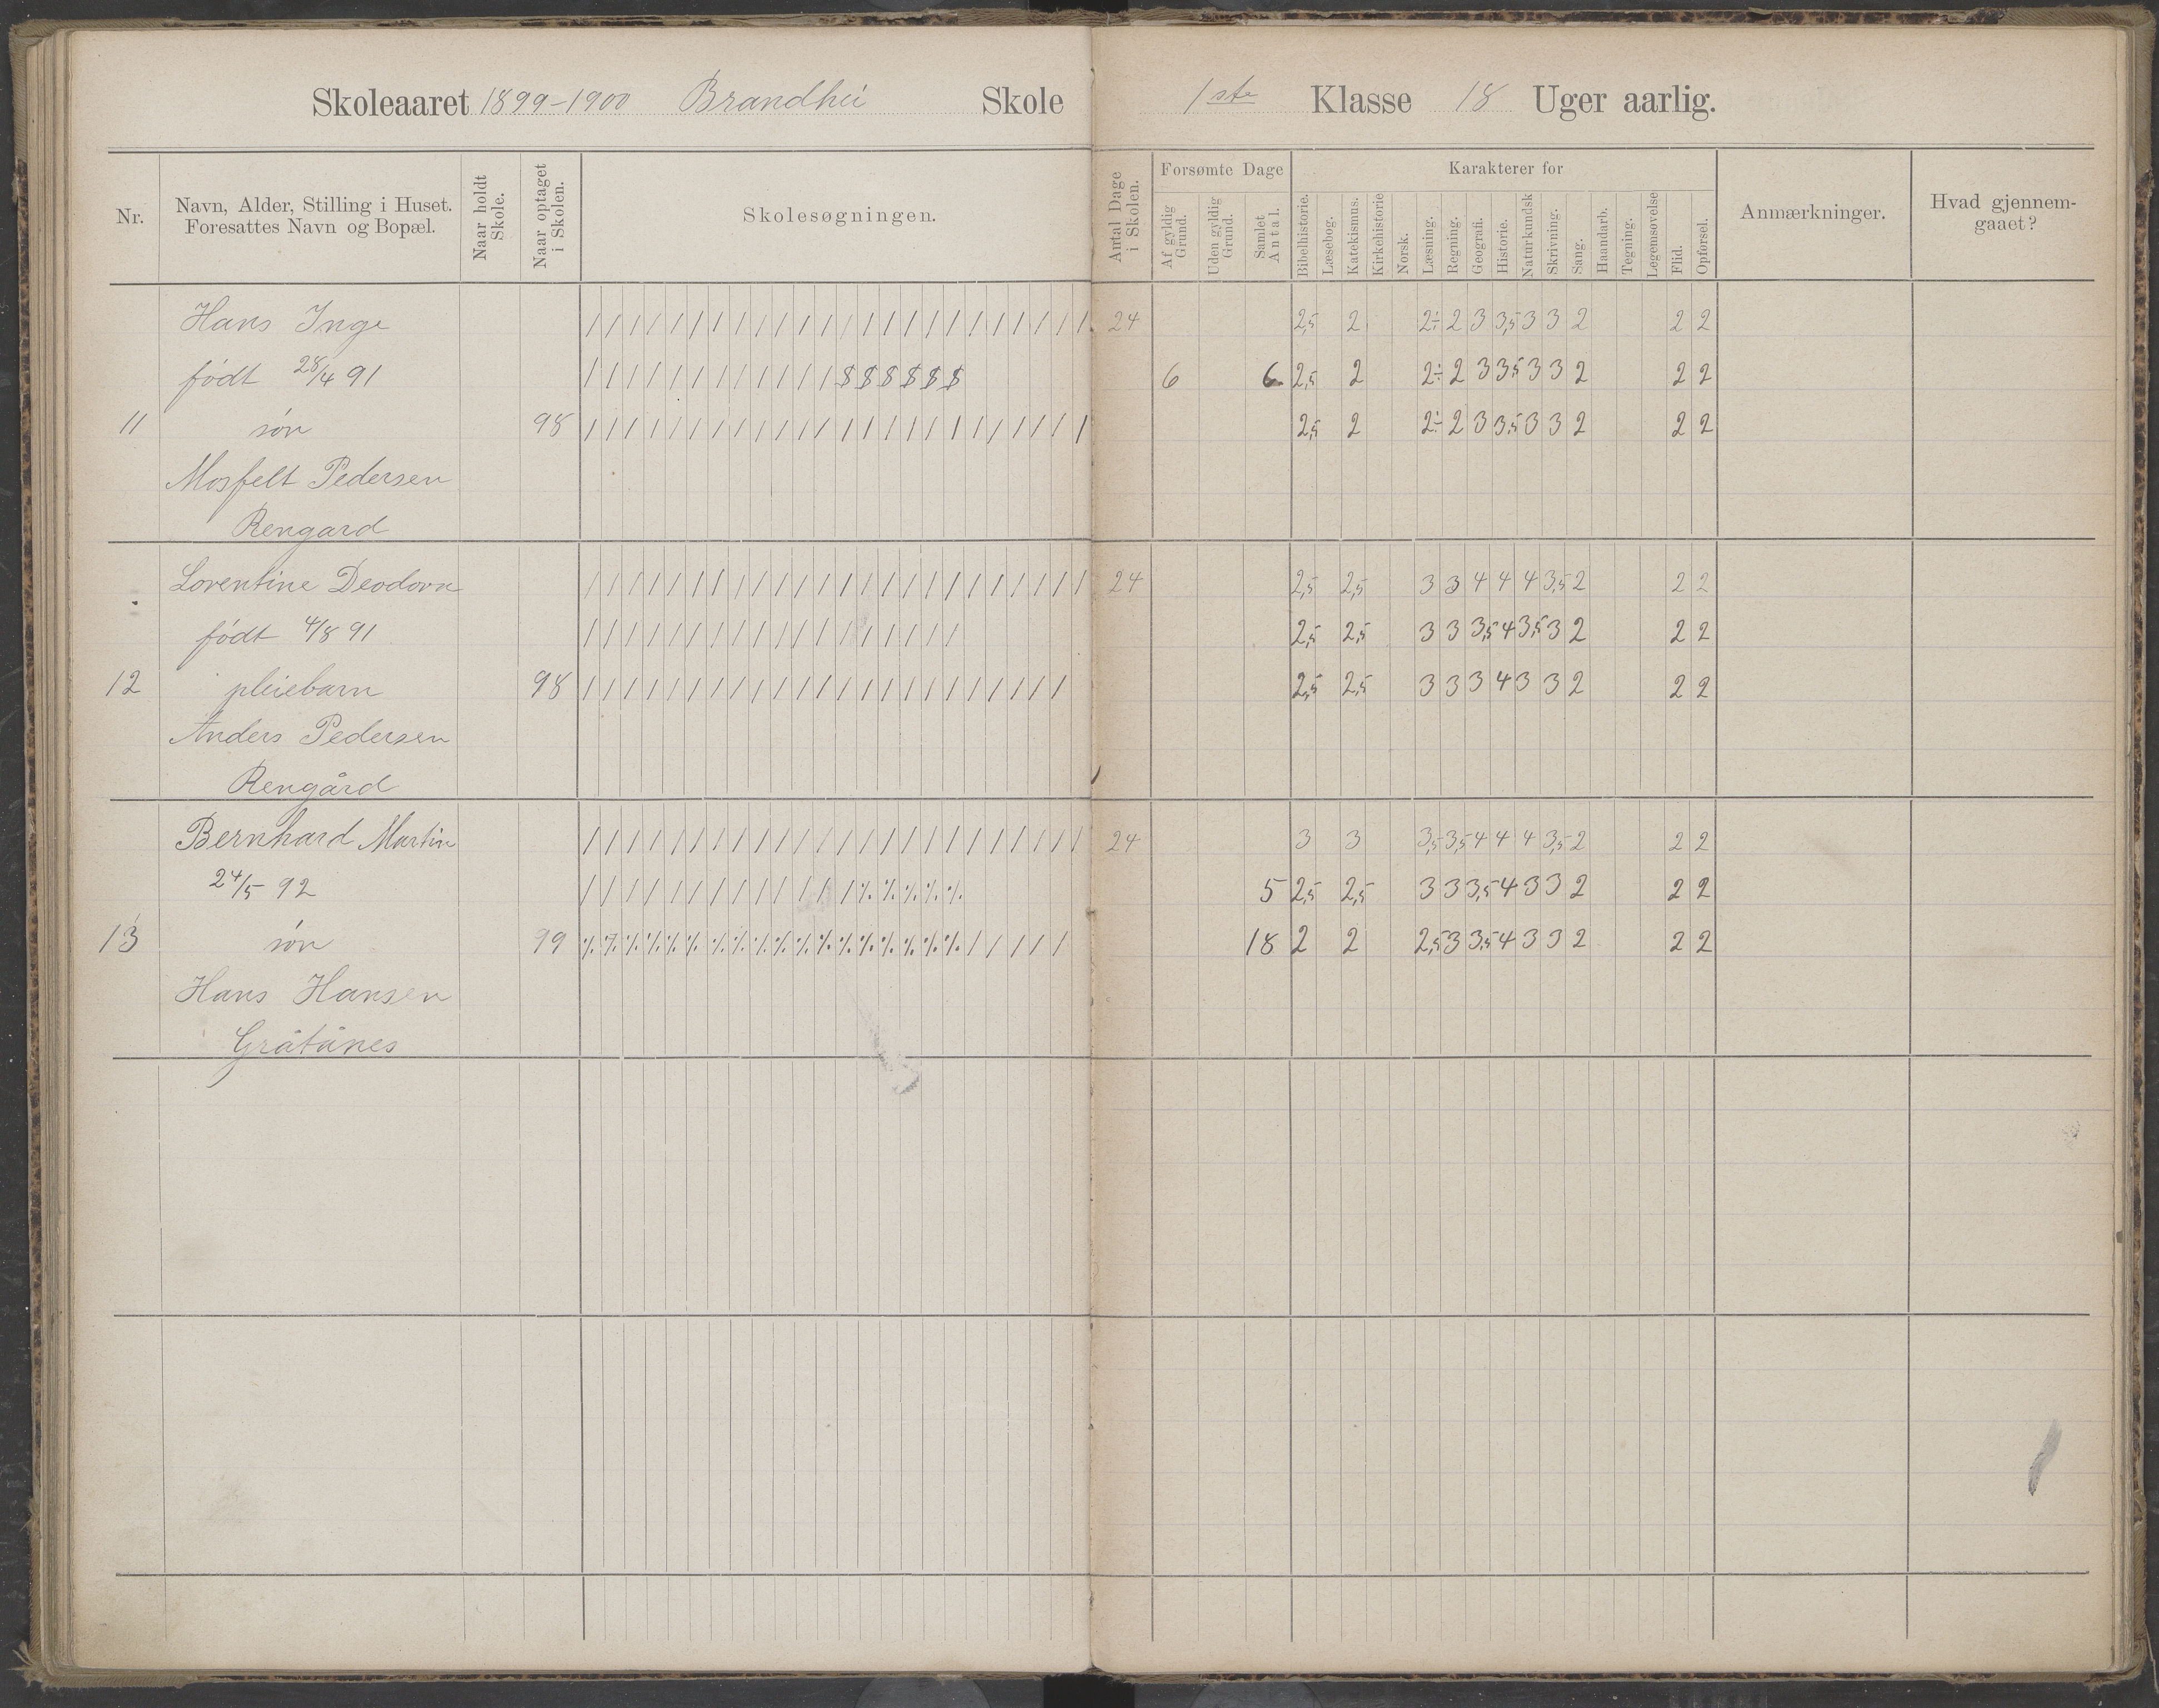 Skoleaaret 1899-1900 Brandhei Skole 1ste Klasse 18 Uger aarlig.
Nr.
Navn, Alder, Stilling i Huset.
Foresattes Navn og Bopæl.
Naar holdt
Skole.
Naar optaget
i Skolen.
Skolesøgningen.
Antal Dage
i Skolen.
Forsømte Dage
Af gyldig
Grund.
Uden gyldig
Grund.
Samlet
Antal.
Karakterer for
Bibelhistorie.
Læsebog.
Katekismus.
Kirkehistorie
Norsk.
Læsning.
Regning.
Geografi.
Historie.
Naturkundsk
Skrivning.
Sang.
Haandarb.
Tegning.
Legemsøvelse
Flid.
Opførsel.
Anmærkninger.
Hvad gjennem-
gaaet?
Hans Inge / / / / / / / / / / / / / / / / / / / / / / / / 24 2,5 2 2÷ 2 3 3,5 3 3 2 2 2
født 28/4 91 / / / / / / / / / / / / $ $ $ $ $ $ 6 6 2,5 2 2÷ 2 3 3,5 3 3 2 2 2
11 søn 98 / / / / / / / / / / / / / / / / / / / / / / / / 2,5 2 2÷ 2 3 3,5 3 3 2 2 2
Mosfelt Pedersen
Rengard
Lorentine Deodora / / / / / / / / / / / / / / / / / / / / / / / / 24 2,5 2,5 3 3 4 4 4 3,5 2 2 2
født 4/8 91 / / / / / / / / / / / / / / / / / / 2,5 2,5 3 3 3,5 4 3,5 3 2 2 2
12 pleiebarn 98 / / / / / / / / / / / / / / / / / / / / / / / 2,5 2,5 3 3 3 4 3 3 2 2 2
Anders Pedersen
Rengård
Bernhard Martin / / / / / / / / / / / / / / / / / / / / / / / / 24 3 3 3,5 3,5 4 4 4 3,5 2 2 2
24/5 92 / / / / / / / / / / / / / % % % % % 5 2,5 2,5 3 3 3,5 4 3 3 2 2 2
13 søn 99 % % % % % % % % % % % % % % % % % % / / / / / 18 2 2 2,5 3 3,5 4 3 3 2 2 2
Hans Hansen
Gråtånes